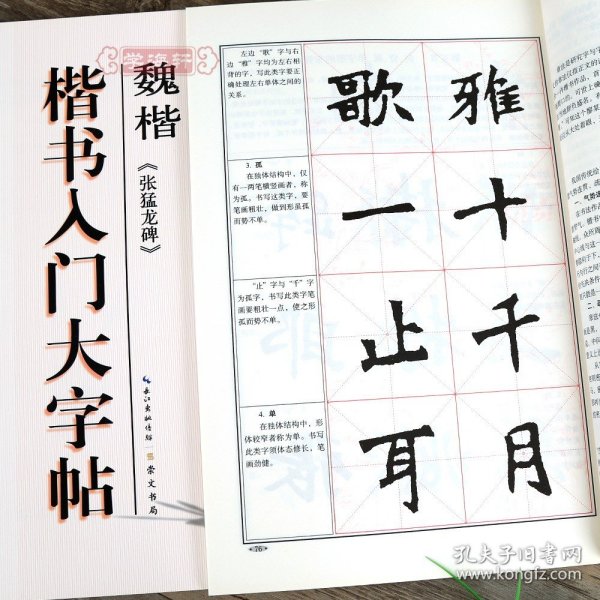 学海轩
楷书入门大字帖
魏楷
《张猛龙碑》
长江出版传媒
崇文书局
左边“歌”字与右
边“雅”字均为左右相
背的字，写此类字要正
确处理左右单体之间的
关系。
歌雅
3. 孤
在独体结构中，仅
有一两笔横竖画者，称
为孤。书写这类字，要
笔画粗壮，做到形虽孤
而势不单。
一十
“止”字与“千”字
为孤字，书写此类字笔
画要粗壮一点，使之形
孤而势不单。
止千
4. 单
在独体结构中，形
体较窄者称为单。书写
此类字须体态修长，笔
画劲健。
耳月
76
孔夫子旧书网
www.kongfz.com